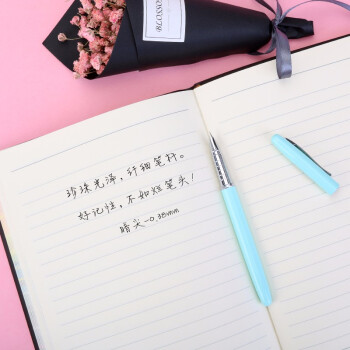 珍珠光泽，纤细笔杆。
好记性，不如烂笔头！
暗尖-0.38mm